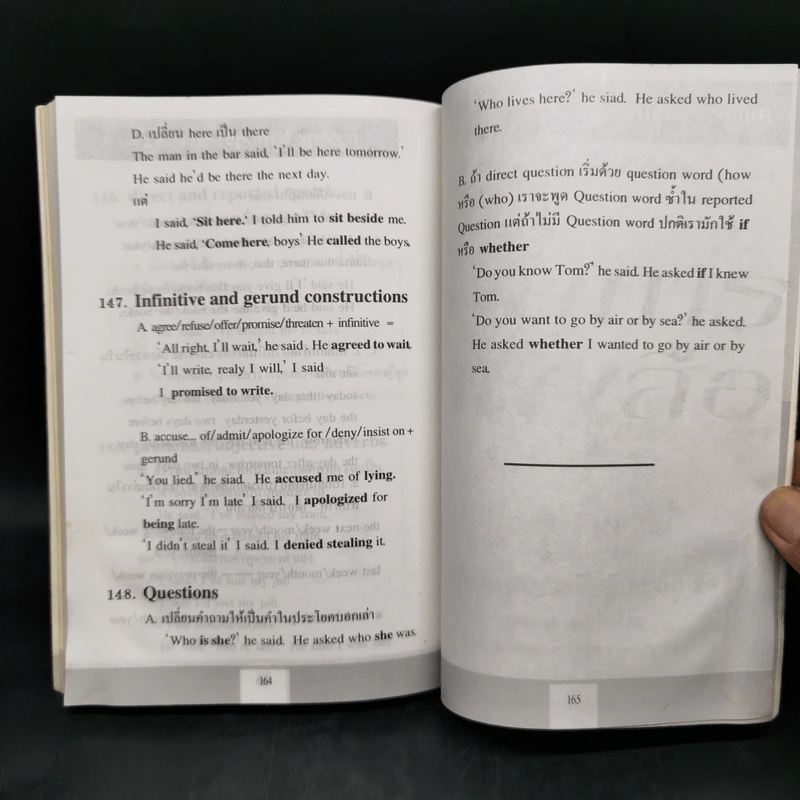 D. เปลี่ยน here เป็น there
The man in the bar said, 'I'll be here tomorrow.'
He said he'd be there the next day.
แต่
I said, 'Sit here.' I told him to sit beside me.
He said, 'Come here, boys' He called the boys.
147. Infinitive and gerund constructions
A. agree/refuse/offer/promise/threaten + infinitive =
'All right, I'll wait,' he said. He agreed to wait.
'I'll write, realy I will,' I said
I promised to write.
B. accuse... of/admit/apologize for /deny/insist on +
gerund
'You lied,' he siad. He accused me of lying.
'I'm sorry I'm late' I said. I apologized for
being late.
'I didn't steal it' I said. I denied stealing it.
148. Questions
A. เปลี่ยนคำถามให้เป็นคำในประโยคบอกเล่า
'Who is she?' he said. He asked who she was.
164
'Who lives here?' he siad. He asked who lived
there.
B. ถ้า direct question เริ่มด้วย question word (how
หรือ (who) เราจะพูด Question word ซ้ำใน reported
Question แต่ถ้าไม่มี Question word ปกติเรามักใช้ if
หรือ whether
'Do you know Tom?' he said. He asked if I knew
Tom.
'Do you want to go by air or by sea?' he asked.
He asked whether I wanted to go by air or by
sea.
165